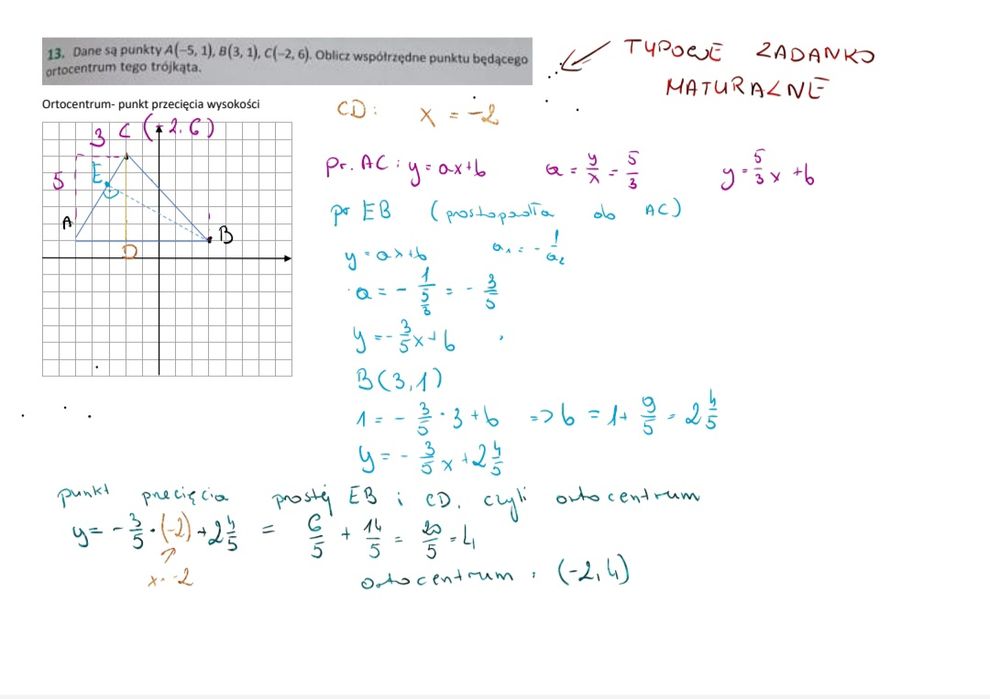 13. Dane są punkty A(−5, 1), B(3, 1), C(−2, 6). Oblicz współrzędne punktu będącego
ortocentrum tego trójkąta.
TYPOWE ZADANKO
MATURALNE
Ortocentrum- punkt przecięcia wysokości
3 C (-2.6)
5 E
A
B
D
CD: x = -2
Pr. AC: y = ax+b a = y/x = 5/3 y = 5/3 x + b
pr EB (prostopadła do AC)
y = ax+b a₁ = - 1/a₂
a = - 1/(5/3) = - 3/5
y = - 3/5 x + b
B(3,1)
1 = - 3/5 · 3 + b => b = 1 + 9/5 = 2 4/5
y = - 3/5 x + 2 4/5
punkt precięcia prostej EB i CD, czyli ortocentrum
y = - 3/5 · (-2) + 2 4/5 = 6/5 + 14/5 = 20/5 = 4
x = -2
ortocentrum : (-2,4)